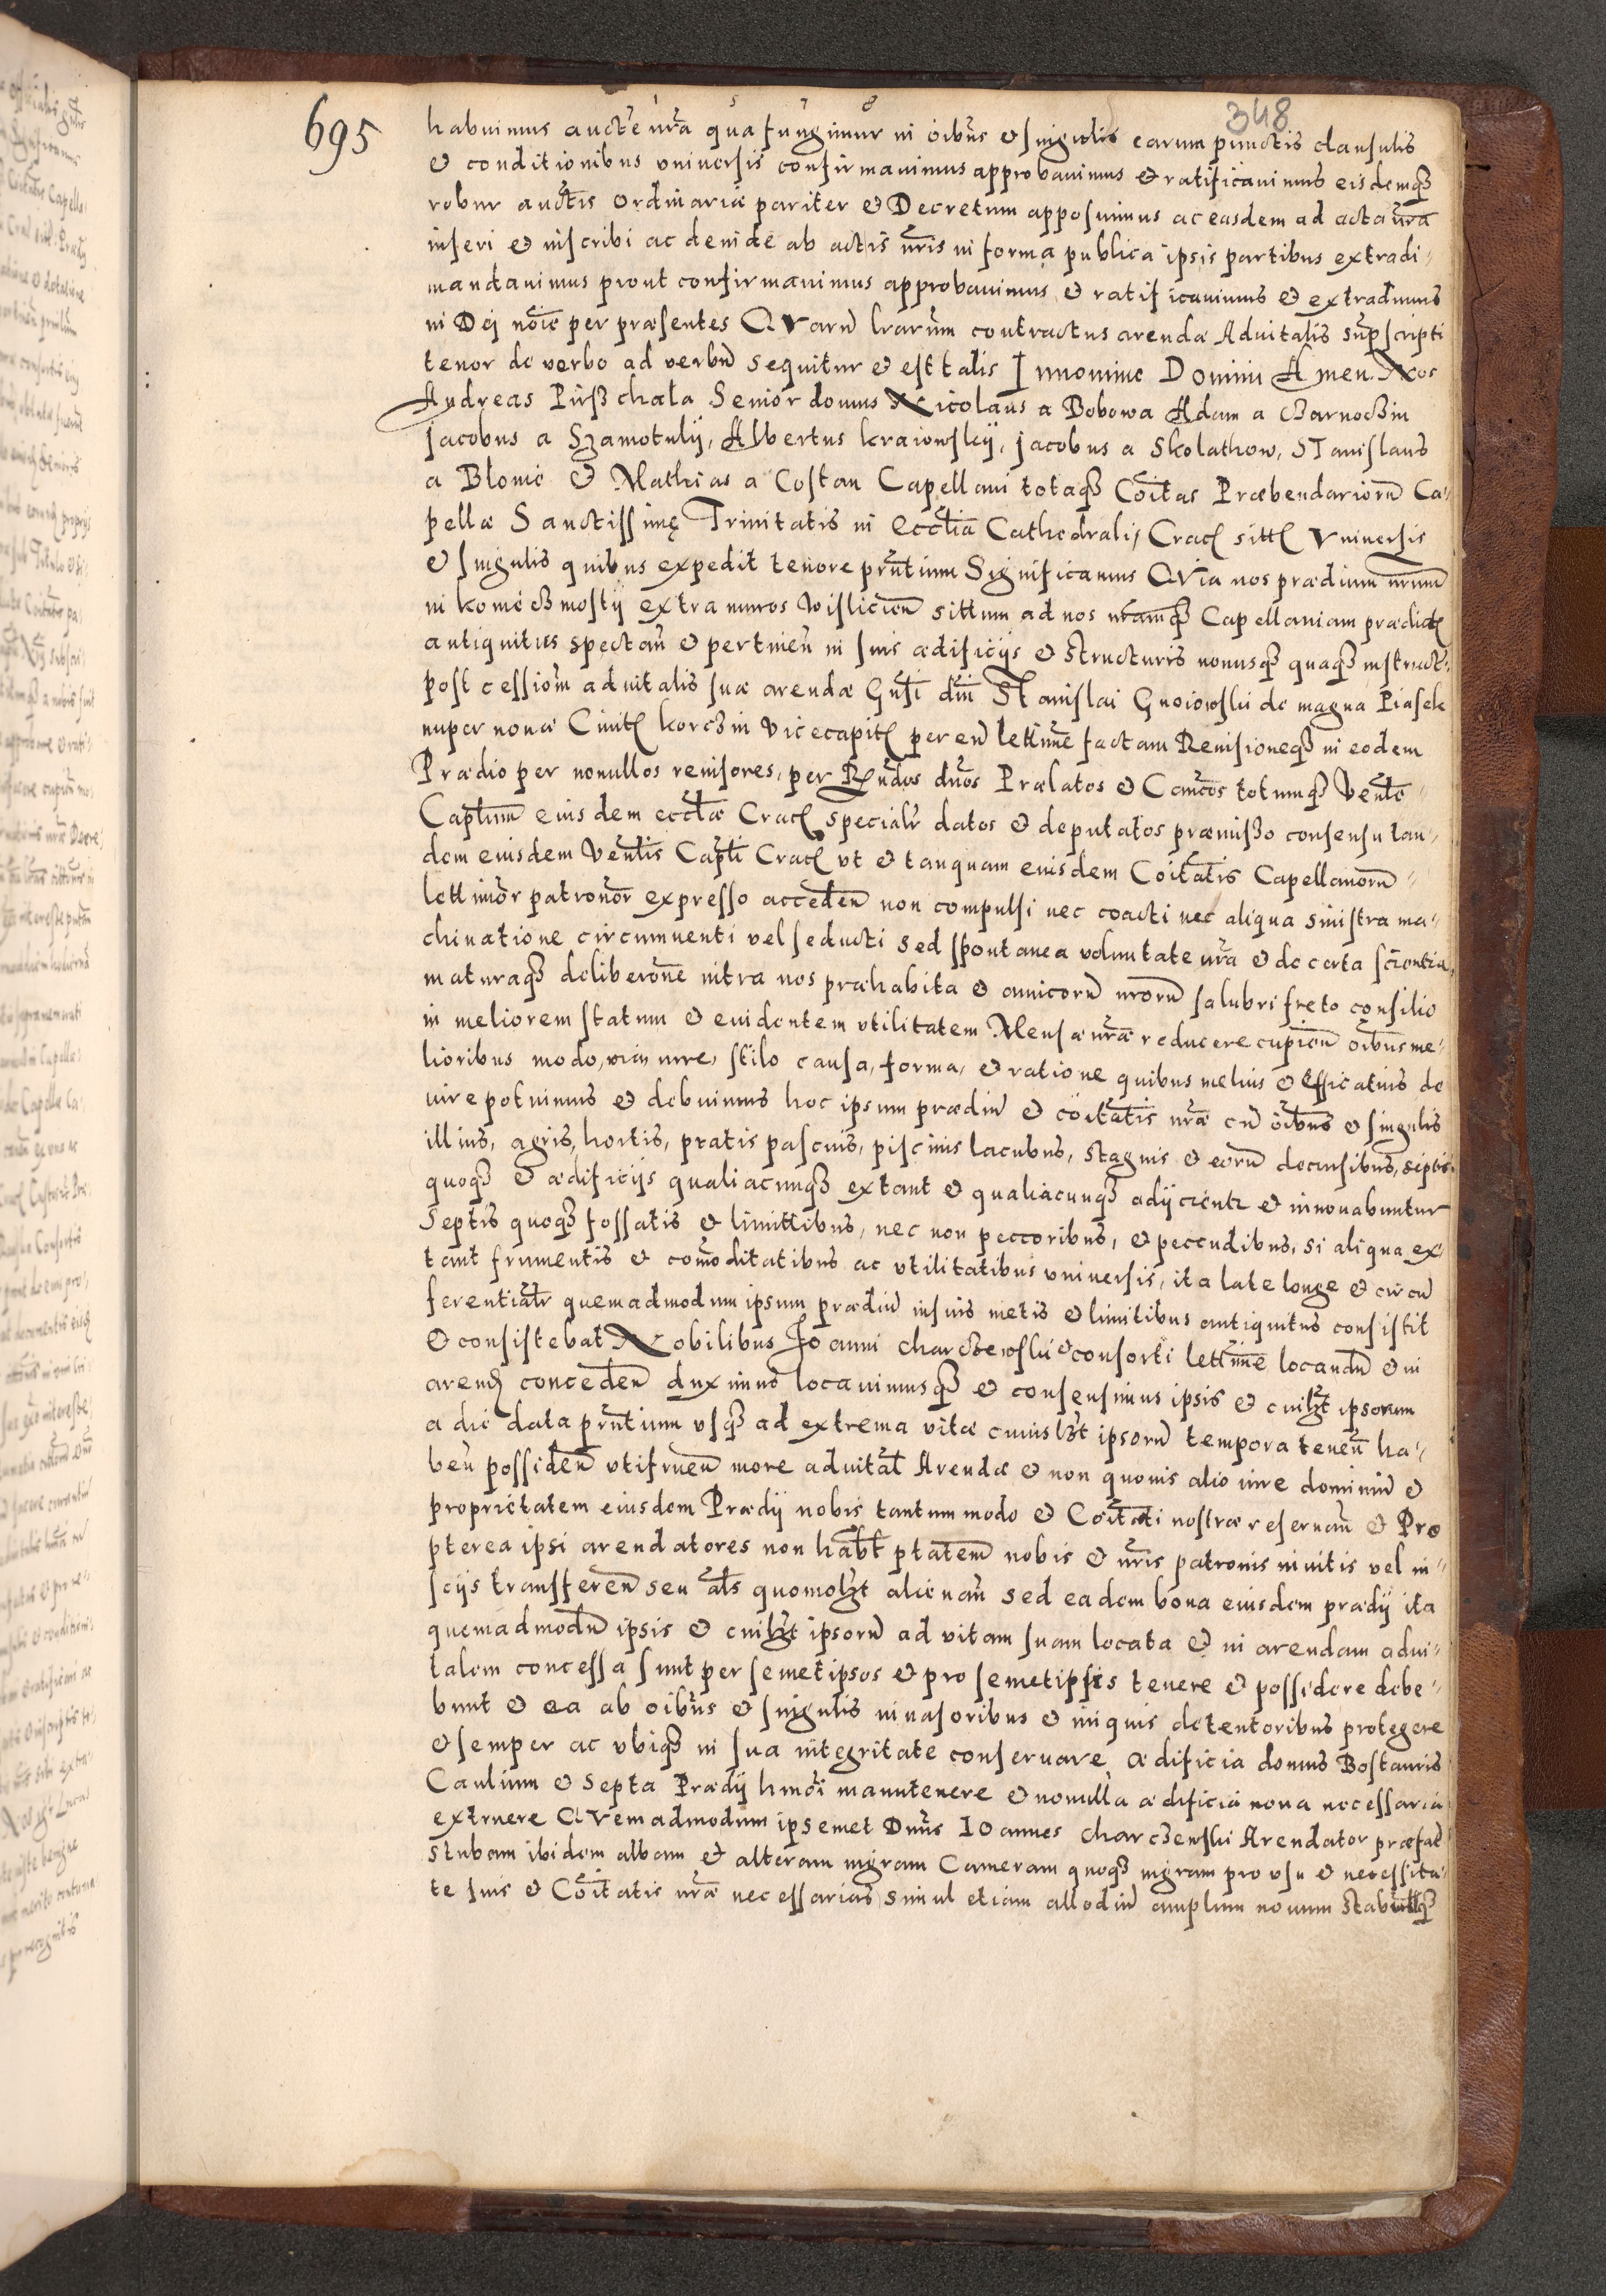 695
348
habuimus aucte nra qua fungimur in oibus et singulis earum punctis clausulis
et conditionibus vniuersis confirmauimus approbauimus et ratificauimus eisdemq3
robur auctis ordinariæ pariter et Decretum apposuimus ac easdem ad acta nra
inseri et inscribi ac deinde ab actis nris in forma publica ipsis partibus extradi-
mandauimus prout confirmauimus approbauimus et ratificauimus et extradimus
in Dej noie per præsentes QVaru lrarum contractus arendæ Aduitalis supscripti
tenor de verbo ad verbu sequitur et est talis In nomine Domini Amen. Nos
Andreas Pirszchala Senior domus Nicolaus a Bobowa Adam a Czarnoczin
Jacobus a Szamotulij, Albertus kraiowskij, Jacobus a Skolathow, STanislaus
a Blonie et Mathias a Costan Capellani totaq3 Coitas Præbendarioru Ca-
pellæ Sanctissimę Trinitatis in Ecclia Cathedrali Crac sitt Vniuersis
et singulis quibus expedit tenore pntium Significamus QVia nos prædium nrum
in komeczmostij extra muros Wislicien sittum ad nos nramq3 Capellaniam prædict
antiquitus spectan et pertinen in suis ædificijs et structuris nonusq3 quaq3 instruct-
post cessiom aduitalis suæ arendæ Gnsi dni STanislai Gnoiowski de magna Piasek
nuper nonæ Ciuit korczin Vicecapit per eu lettime factam Reuisioneq3 in eodem
Prædio per nonullos reuisores, per Rndos dnos Prælatos et Canicos totumq3 Venle
Captum eiusdem eccliæ Crac specialr datos et deputatos præmisso consensu tan-
dem eiusdem Venlis Capli Crac vt et tanquam eiusdem Coitatis Capellanoru
lettimor patronor expresso acceden non compulsi nec coacti nec aliqua sinistra ma-
chinatione circumuenti vel seducti sed spontanea voluntate nra et de certa scientia,
maturaq3 deliberone intra nos præhabita et amicoru nroru salubri freto consilio
in meliorem statum et euidentem vtilitatem Mensæ nræ reducere cupien oibus me-
lioribus modo, via, iure, stilo causa, forma, et ratione quibus melius et efficatius de
iure potuimus et debuimus hoc ipsum prædiu et coitatis nræ cu oibus et singulis
illius, agris, hortis, pratis pascuis, piscinis lacubus, stagnis et eoru decursibus, septis
quoq3 et ædificijs qualiacunq3 extant et qualiacunq3 adijcientr et innouabuntur
Septis quoq3 fossatis et limittibus, nec non peccoribus, et peccudibus, si aliqua ex-
tant frumentis et comoditatibus ac vtilitatibus vniuersis, ita late longe et circu
ferentialr quemadmodum ipsum prædiu in suis metis et limitibus antiquitus consistit
et consistebat Nobilibus Joanni charczewski et consorti lettime locandu et in
arend conceden duximus locauimusq3 et consensimus ipsis et cuilzt ipsorum
a die data pntium vsq3 ad extrema vitæ cuiuslzt ipsoru tempora tenen ha-
ben possiden vtifruen more aduital Arendæ et non quouis alio iure dominiu et
proprietatem eiusdem Prædij nobis tantummodo et Coitati nostræ reseruan et Pro
pterea ipsi arendatores non habt ptatem nobis et nris patronis inuitis vel in-
scijs transferen seu als quomolzt alienan sed eadem bona eiusdem prædij ita
quemadmodu ipsis et cuilzt ipsoru ad vitam suam locata et in arendam adui-
talem concessa sunt per semetipsos et pro semetipsis tenere et possidere debe-
bunt et ea ab oibus et singulis inuasoribus et iniquis detentoribus protegere
et semper ac vbiq3 in sua integritate conseruare ædificia domus Bostauris
Caulium et septa Prædij hmoi manutenere et nonulla ædificia noua necessaria
extruere QVemadmodum ipsemet Dnus IOannes charczewski Arendator præfat
stubam ibidem albam et alteram nigram Cameram quoq3 nigram pro vsu et necessita-
te suis et Coitatis nræ necessarias simul etiam allodiu amplum nouum stabullq3